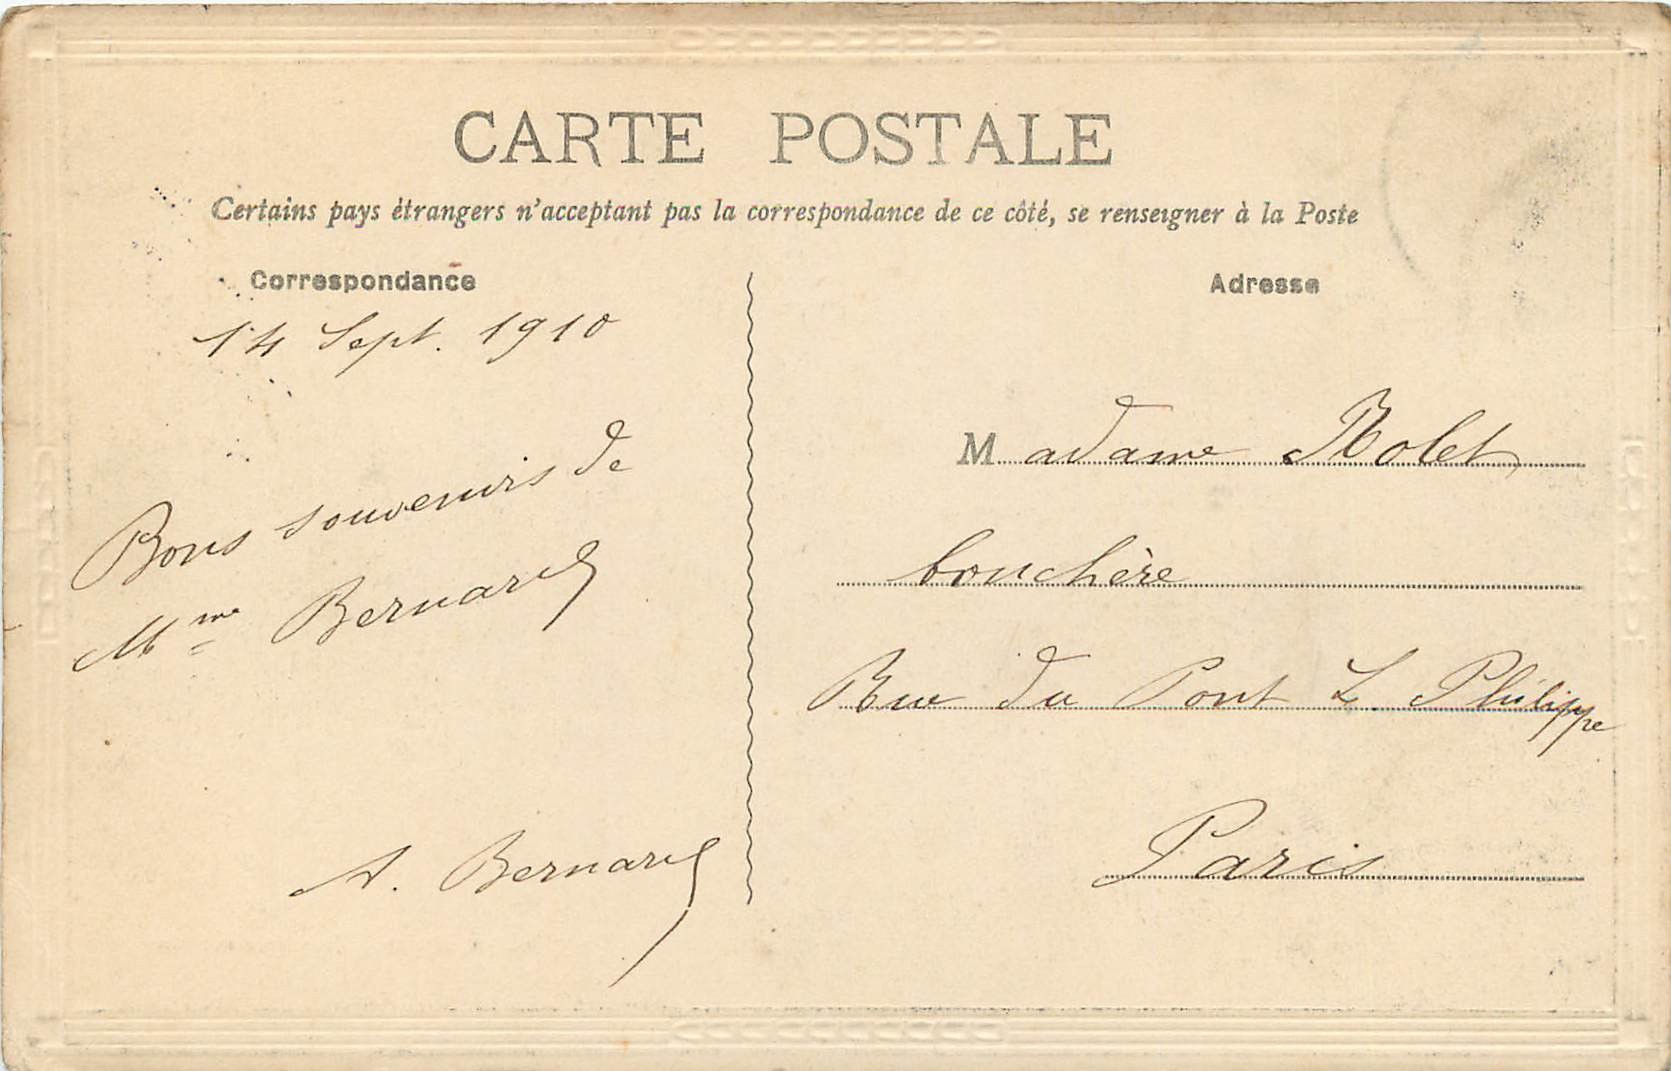 CARTE POSTALE
Certains pays étrangers n'acceptant pas la correspondance de ce côté, se renseigner à la Poste
Correspondance
14 Sept. 1910
Bons souvenirs de
Mme Bernard
A. Bernard
Adresse
Madame Rolet
bouchère
Rue du Pont L. Philippe
Paris